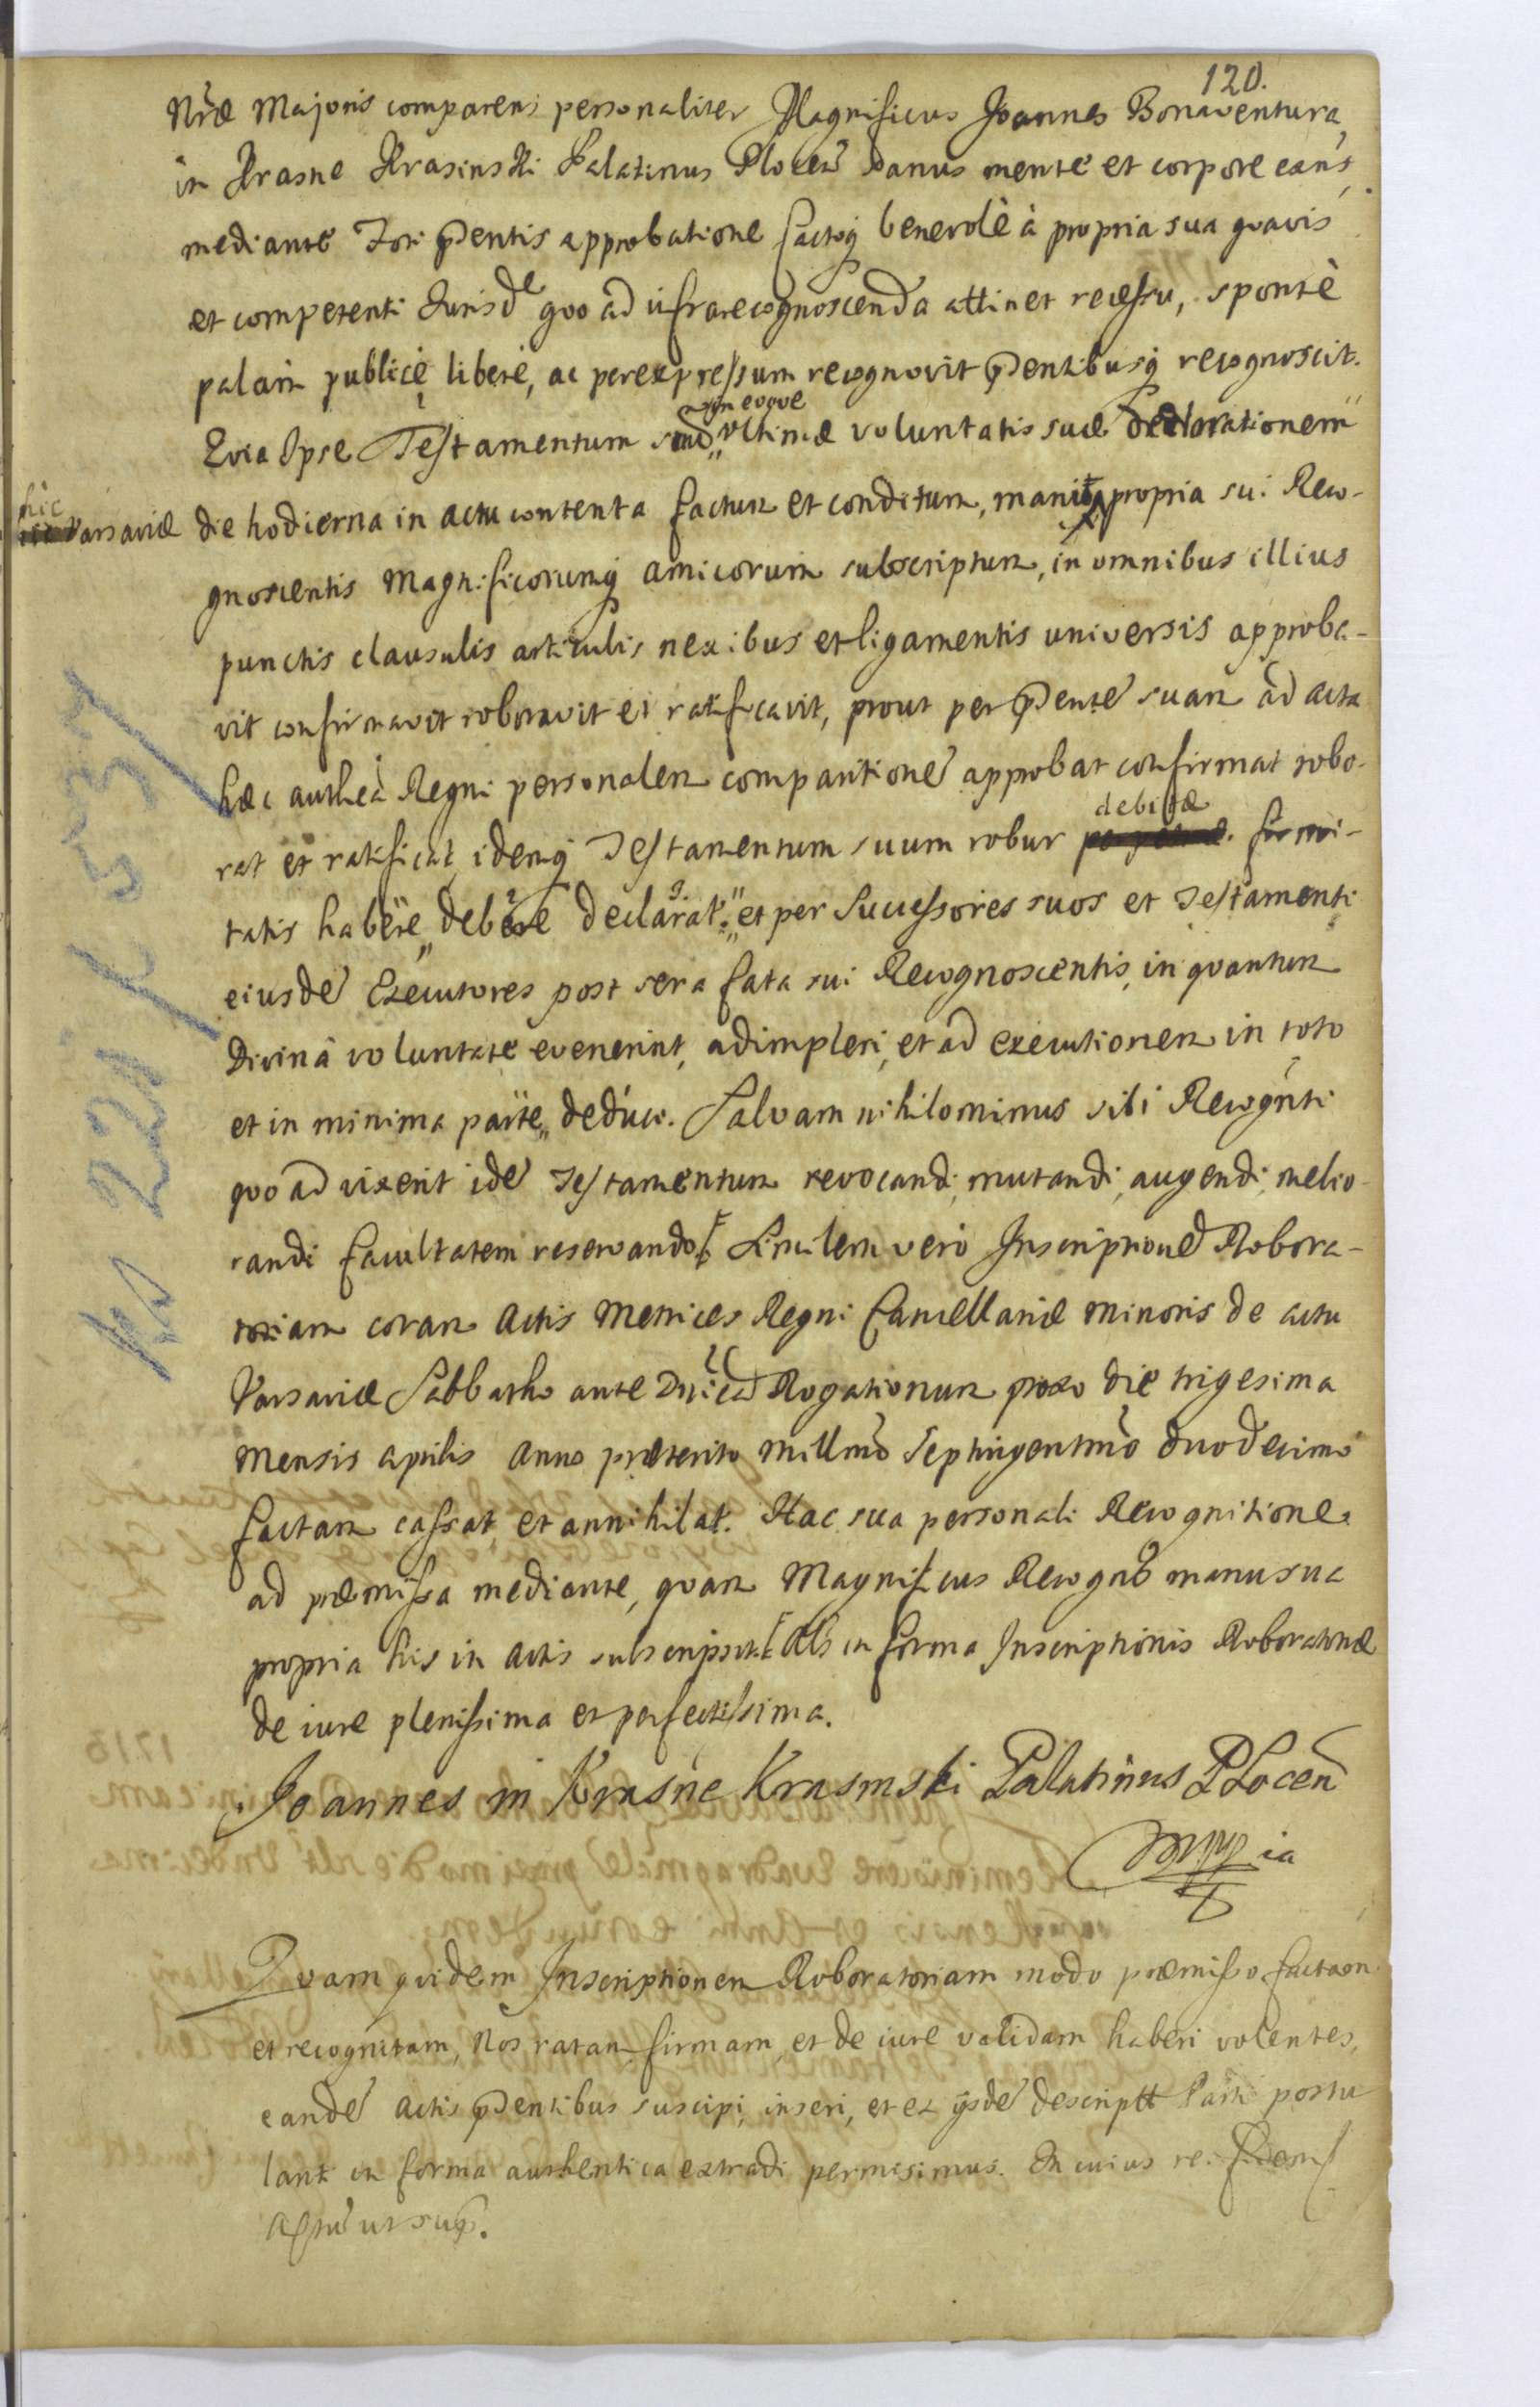 120.
Nrae Majoris comparens personaliter Magnificus Joannes Bonaventura
in Krasne Krasinski Palatinus Plocen̄ sanus mente et corpore exn̄s,
mediante Fori pñdentis approbatione factoq́ benevolè à propria sua quavis
et competenti Jurisde quo ad infrarecognoscenda attinet recessu, spontè
palam publicè liberè, ac per expressum recognovit pñdentibusq́ recognoscit.
in eoque
Quia Ipse Testamentum suū ultimae voluntatis suae declarationem
hic Varsaviae die hodierna in actu contenta factum et conditum, manu propria sui Reco-
gnoscentis Magnificorumq́ amicorum subscriptum, in omnibus illius
punctis clausulis articulis nexibus et ligamentis universis approba-
vit confirmavit roboravit et ratificavit, prout per pñdentē suam ad acta
haec authēa Regni personalem comparitionē approbat confirmat robo-
debitae
rat et ratificat, idemq́ Testamentum suum robur firmi-
tatis habere debere declarat et per Successores suos et Testamenti
eiusdē Executores post sera fata sui Recognoscentis, in quantum
Divinâ voluntate evenerint, adimpleri, et ad executionem in toto
et in minima parte deduci. Salvam nihilominus sibi Recogn̄ti
quo ad vixerit idē Testamentum revocandi, mutandi, augendi, melio-
randi facultatem reservando. Similem vero Inscriptionē Robora-
toriam coram Actis Metrices Regni Cancellariae Minoris de actu
Varsaviae Sabbatho ante Dnīcā Rogationum proxo die trigesima
Mensis Aprilis Anno praeterito Millmō Septingentmō duodecimo
factam cassat et annihilat. Hac sua personali Recognitione
ad praemissa mediante, quam Magnificus Recogns manu sua
propria his in Actis subscripsit. Als in forma Inscriptionis Roboratoriae
de iure plenissima et perfectissima.
Joannes in Krasne Krasinski Palatinus PLocen̄
mppia
Quam quidem Inscriptionem Roboratoriam modo praemisso factam
et recognitam, Nos ratam firmam, et de iure validam haberi volentes,
eandē Actis pñdentibus suscipi, inseri, et ex ijsdē descriptt Parti postu
lanti in forma authentica extradi permisimus. In cuius rei fidem
Actū ut supr.
Ks 221 k 537